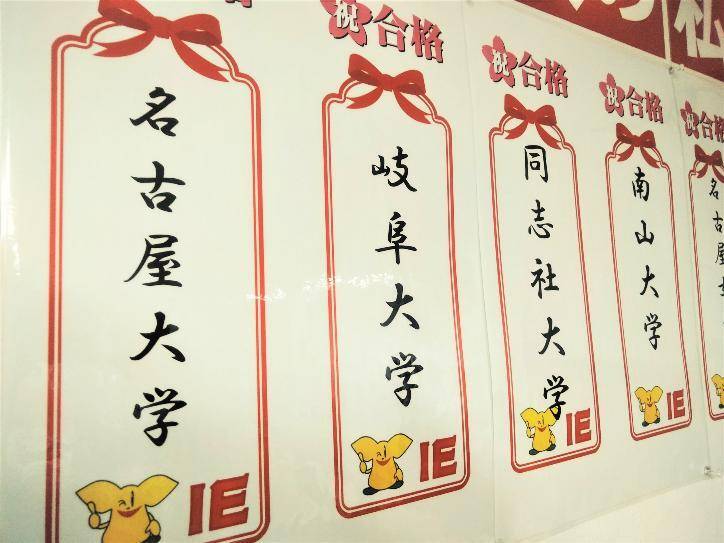 合格
名古屋大学
IE
祝合格
岐阜大学
IE
祝合格
同志社大学
IE
祝合格
南山大学
IE
祝合格
名古屋